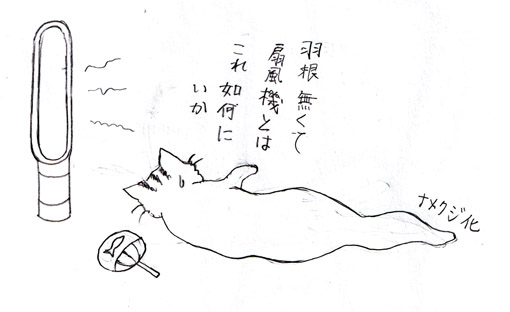 羽根無くて
扇風機とは
これ如何に
いか
ナメクジ化